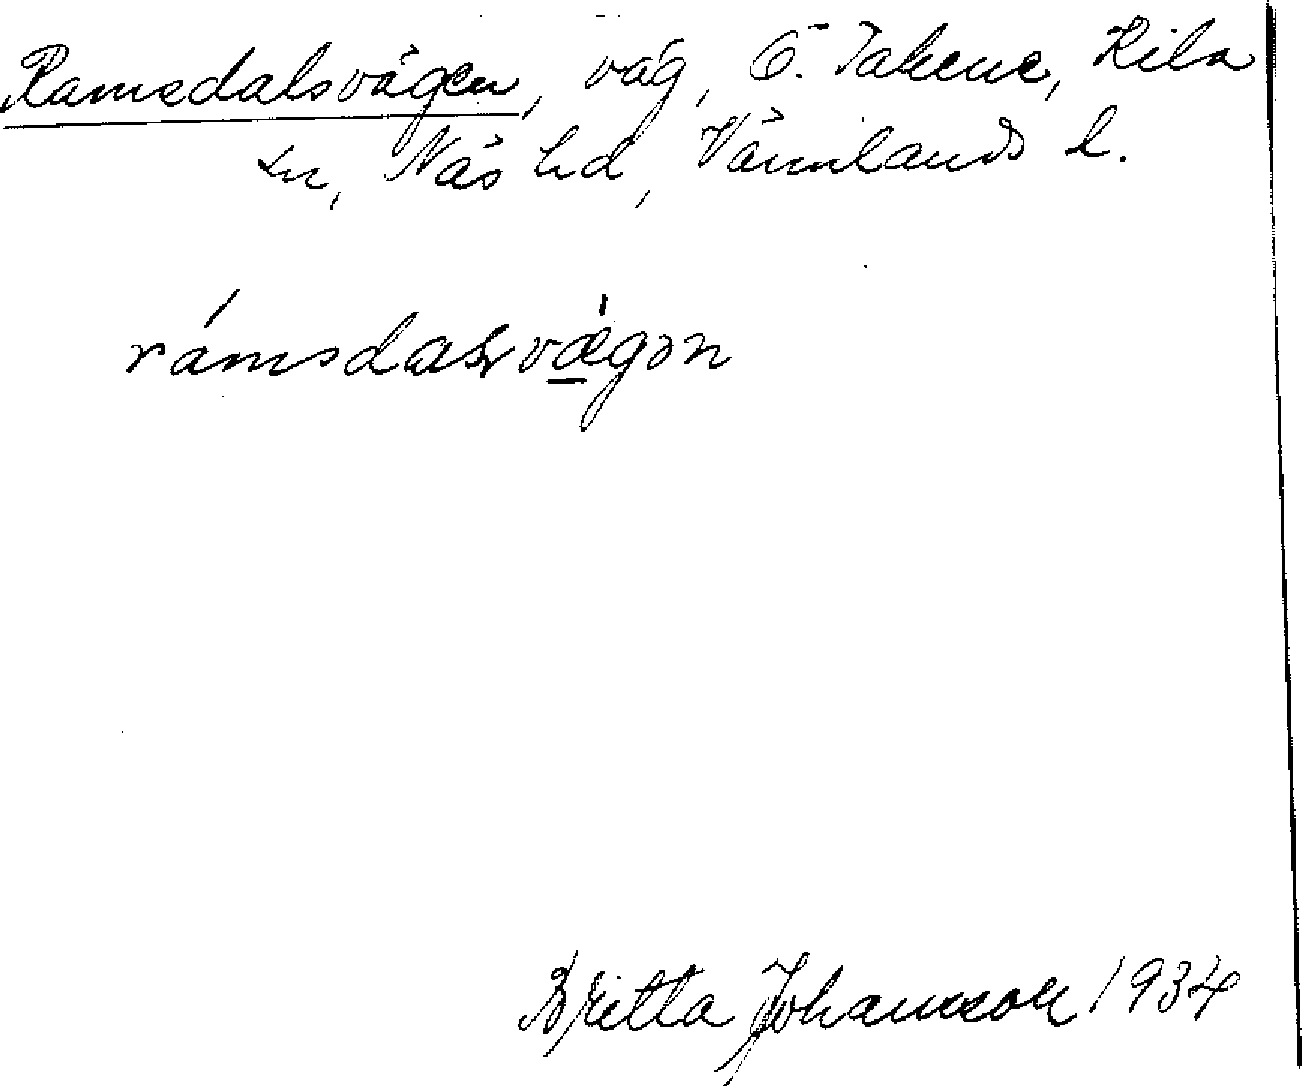 Ramsdalsvägen, väg, Ö. Takene, Kila
sn, Näs hd, Värmlands l.
rámsdalsvǽgən
Britta Johansson 1934